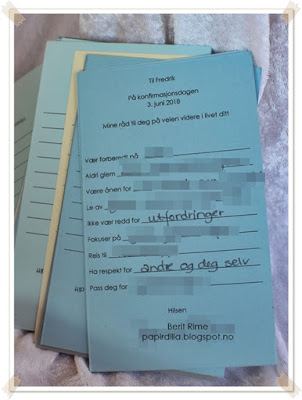 Til Fredrik
På konfirmasjonsdagen
3. juni 2018
Mine råd til deg på veien videre i livet ditt
Vær forberedt på
Aldri glem
Være åpen for
Le av
Ikke vær redd for utfordringer
Fokuser på
Reis til
Ha respekt for andre og deg selv
Pass deg for
Hilsen
Berit Rime
papirdilla.blogspot.no